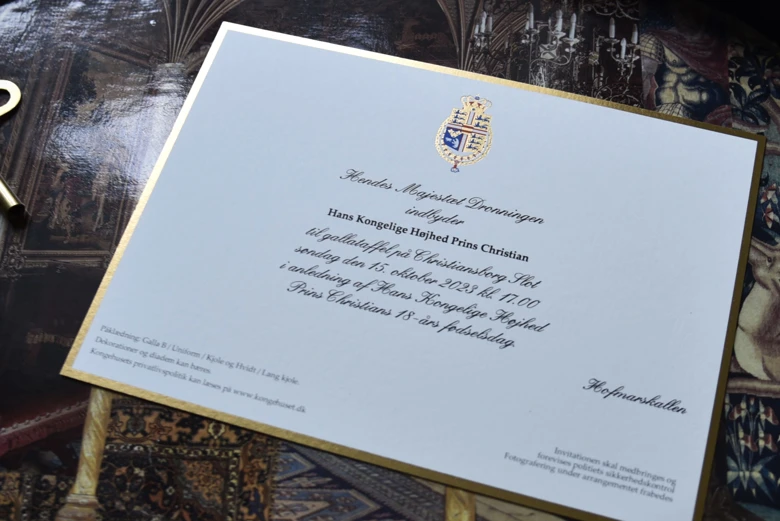 Hendes Majestæt Dronningen
indbyder
Hans Kongelige Højhed Prins Christian
til gallataffel på Christiansborg Slot
søndag den 15. oktober 2023 kl. 17.00
i anledning af Hans Kongelige Højhed
Prins Christians 18-års fødselsdag.
Hofmarskallen
Påklædning: Galla B / Uniform / Kjole og Hvidt / Lang kjole.
Dekorationer og diadem kan bæres.
Kongehusets privatlivspolitik kan læses på www.kongehuset.dk
Invitationen skal medbringes og
forevises politiets sikkerhedskontrol
Fotografering under arrangementet frabedes